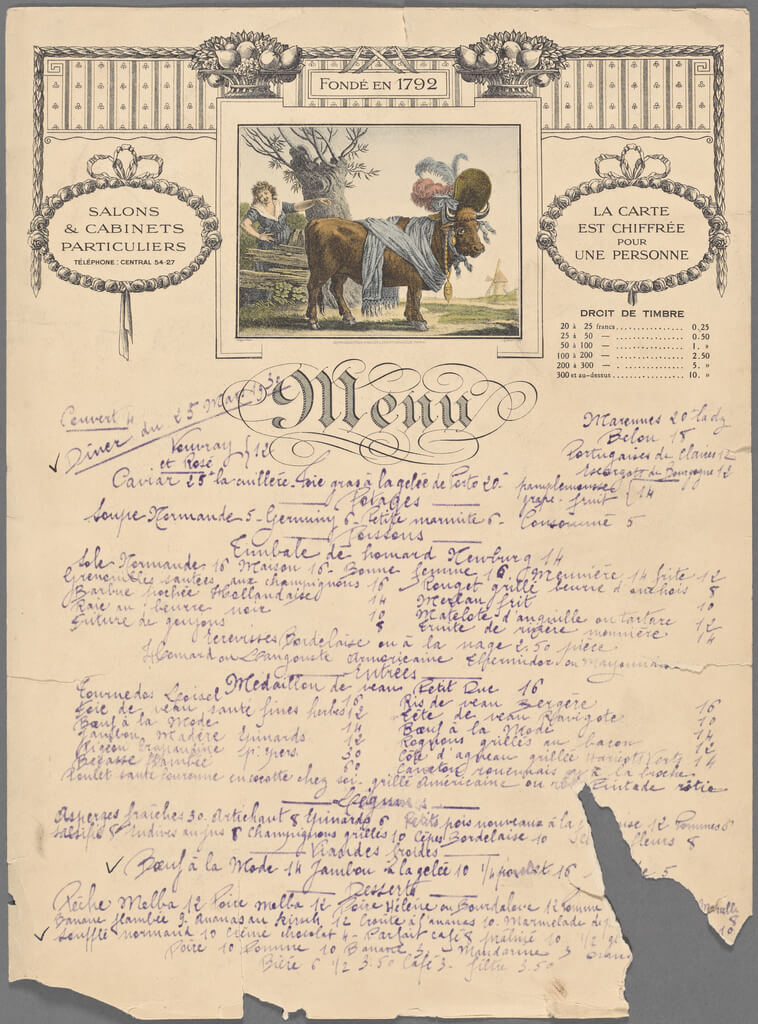 FONDÉ EN 1792
SALONS
& CABINETS
PARTICULIERS
TÉLÉPHONE : CENTRAL 54-27
LA CARTE
EST CHIFFRÉE
POUR
UNE PERSONNE
DROIT DE TIMBRE
20 à 25 francs 0.25
25 à 50 — 0.50
50 à 100 — 1. »
100 à 200 — 2.50
200 à 300 — 5. »
300 et au-dessus 10. »
Menu
Couvert 4
Dîner du 25 Mar
Vouvray
et Rosé } 12
Marennes 20 la dz
Belon 18
Portugaises de Claires 12
Escargots de Bourgogne 12
Caviar 25 la cuillère Foie gras à la gelée de Porto 20 -
pamplemousse
grape-fruit } 14
Potages
Soupe Normande 5 - Germiny 6 - Petite marmite 6 - Consommé 5
Poissons
Timbale de homard Newburg 14
Sole Normande 16 Maison 16 - Bonne femme 16 Meunière 14 frite 12
Grenouilles sautées aux champignons 16
Rouget grillé beurre d'anchois 8
Barbue pochée Hollandaise 14
Merlan frit 10
Raie au beurre noir 10
Matelote d'anguille ou tartare 12
Friture de goujons 8
Truite de rivière meunière 14
Ecrevisses Bordelaise ou à la nage 2.50 pièce
Homard ou Langouste Armoricaine Thermidor ou Mayonnaise
Entrées
Médaillon de veau Petit Duc 16
Tournedos Loisel 16
Ris de veau Bergère 16
Foie de veau sauté fines herbes 12
Tête de veau Ravigote 10
Bœuf à la Mode 14
Bœuf à la Mode 14
Jambon Madère Epinards 12
Rognons grillés au bacon 12
Pigeon
Côte d'agneau grillée Haricots Verts 14
Bécasse flambée
Caneton rouennais à la broche
Poulet sauté couronne en cocotte chez soi - grillé Américaine ou Pintade rôtie
Légumes
Asperges fraîches 30. Artichaut 8 Epinards 6 Petits pois nouveaux à la 12 Pommes 6
Salsifis 8 Endives au jus 8 Champignons grillés 10 Cèpes Bordelaise 10 fleurs 8
Viandes froides
Bœuf à la Mode 14 Jambon à la gelée 10 1/4 poulet 16 - 5
Desserts
Pêche Melba 12 Poire Melba 12 Poire Hélène ou Bourdaloue 12
Banane flambée 9 - Ananas au Kirsch 12 Croûte à l'ananas 10. Marmelade de
Soufflé normand 10 Crème chocolat 4 - Parfait café 8 praliné 10
Poire 10 Pomme 10 Banane 3 Mandarine 3
Bière 6 1/2 3.50 Café 3 - filtre 3.50